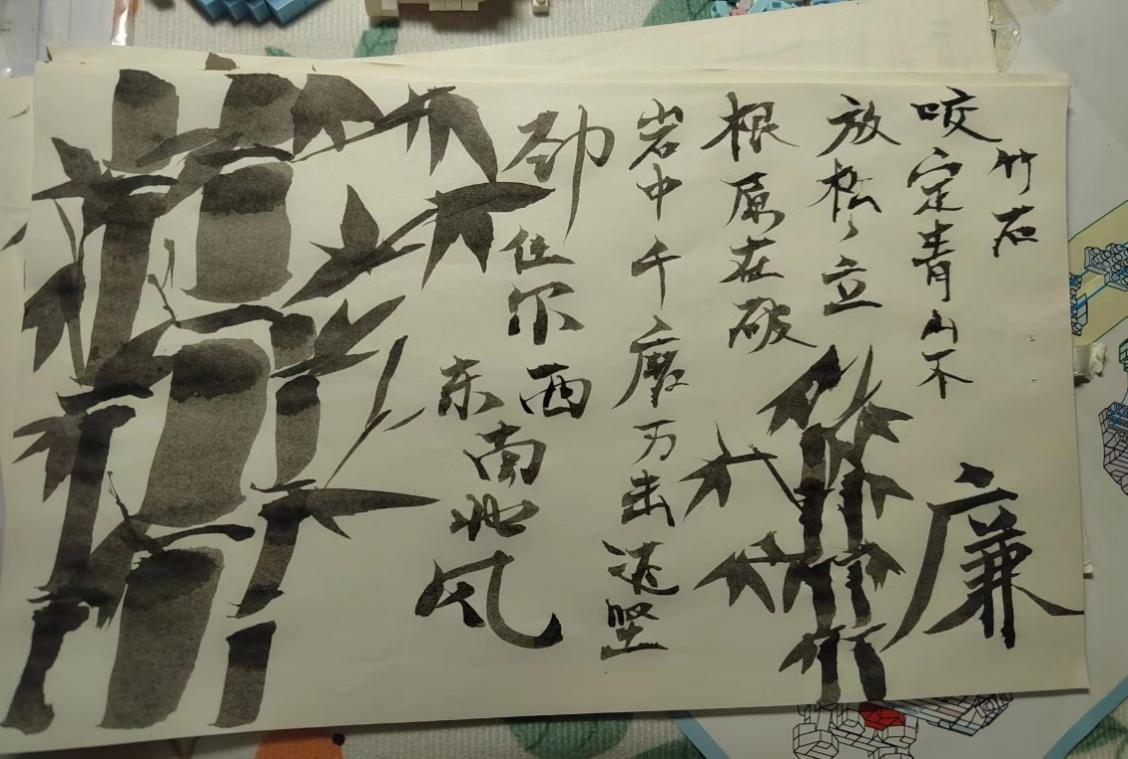 竹石
咬定青山不
放松、立
根原在破
岩中千磨万击还坚
劲任尔
东西南北风
廉